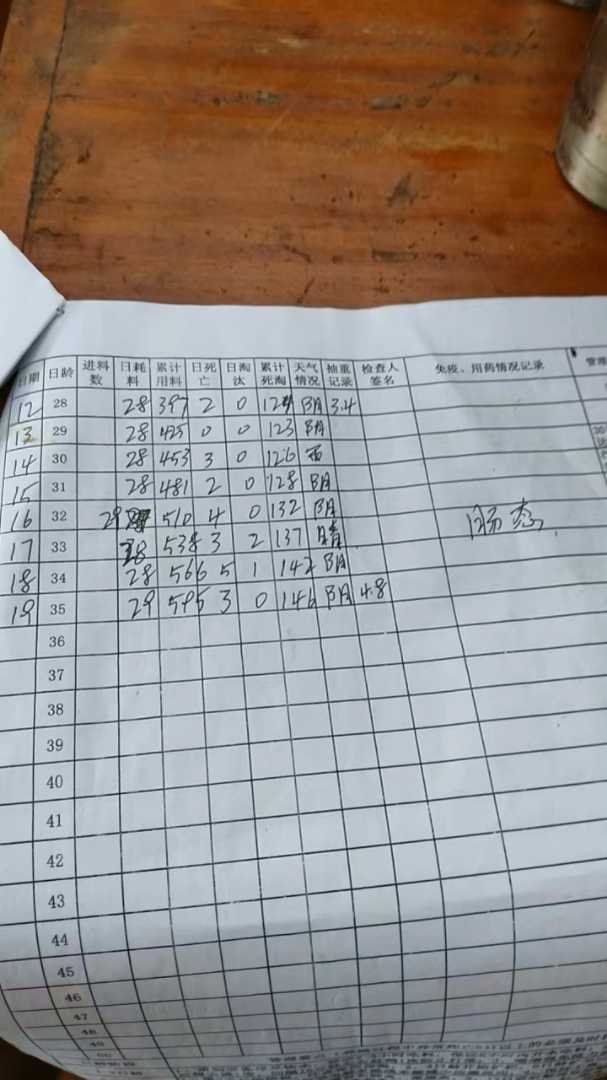 日期 日龄 进料数 日耗料 累计用料 日死亡 日淘汰 累计死淘 天气情况 抽重记录 检查人签名 免疫、用药情况记录
12 28 28 397 2 0 阴 3.4
13 29 28 425 0 0 123 阴
14 30 28 453 3 0 126
15 31 28 481 2 0 128 阴
16 32 29 510 4 0 132 阴
17 33 28 538 3 2 137 晴
18 34 28 566 5 1 阴
19 35 29 595 3 0 146 阴 4.8
36
37
38
39
40
41
42
43
44
45
46
47
48
49